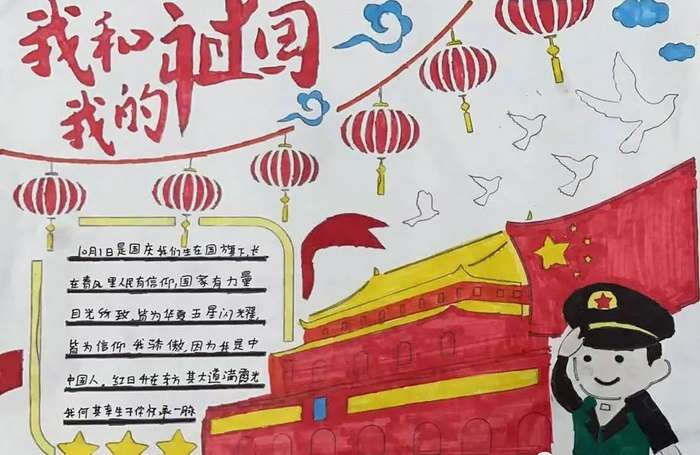 我和祖国
我的
10月1日是国庆我们生在国旗下,长
在春风里人民有信仰,国家有力量
目光所致,皆为华夏五星闪耀,
皆为信仰我骄傲,因为我是中
中国人。红日升在东方其大道满霞光
我何其幸生于你怀承一脉